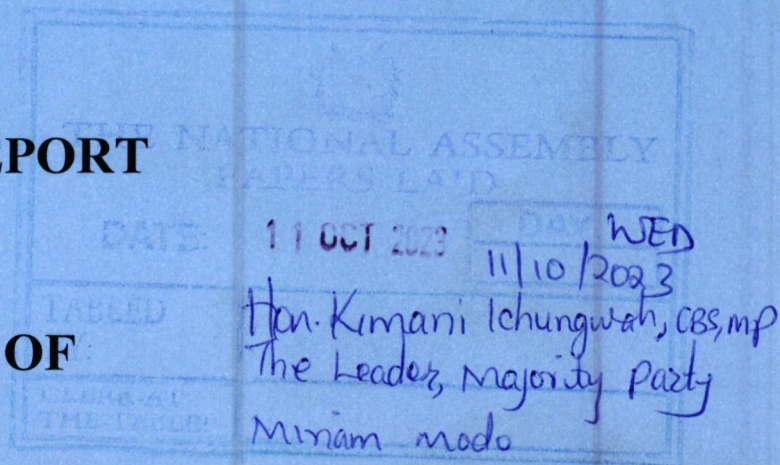 THE NATIONAL ASSEMBLY
EPORT
PAPERS LAID
DATE: 11 OCT 2023 DAY WED
11/10/2023
TABLED
Hon. Kimani Ichungwah, CBS, MP
OF The Leader, Majority Party
CLERK-AT
THE-TABLE: Miriam Modo